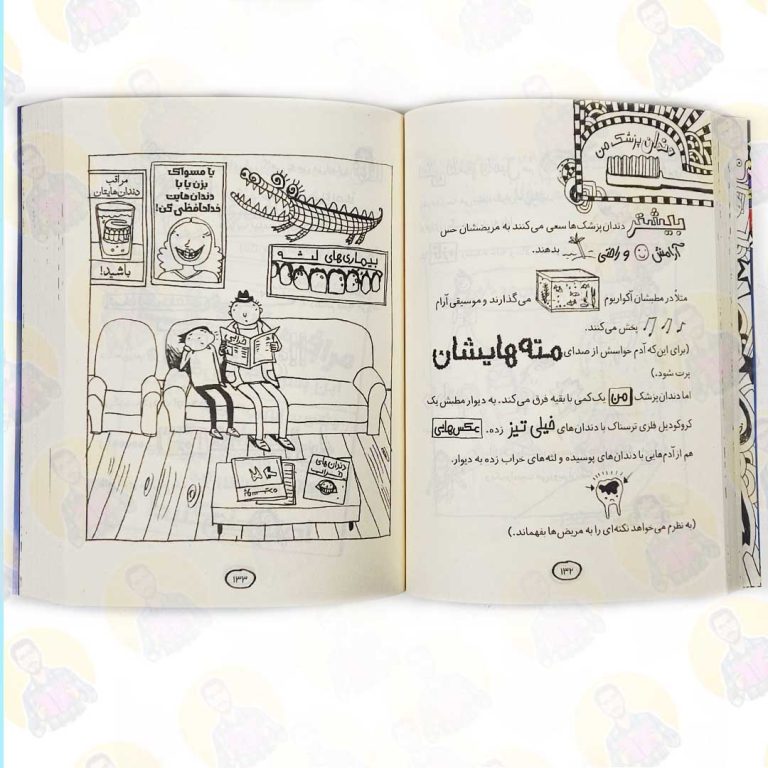 دندان پزشک من
بیشتر دندان‌پزشک‌ها سعی می‌کنند به مریضشان حس
آرامش و راحتی بدهند.
مثلاً در مطبشان آکواریوم می‌گذارند و موسیقی آرام
پخش می‌کنند.
(برای این‌که آدم حواسش از صدای مته‌هایشان
پرت شود.)
اما دندان‌پزشک من یک‌کمی با بقیه فرق می‌کند. به دیوار مطبش یک
کروکودیل فلزی ترسناک با دندان‌های خیلی تیز زده. عکس‌هایی
هم از آدم‌هایی با دندان‌های پوسیده و لثه‌های خراب زده به دیوار.
(به نظرم می‌خواهد نکته‌ای را به مریض‌ها بفهماند.)
۱۳۲
مراقب
دندان‌هایتان
باشید!
یا مسواک
بزن یا با
دندان‌هایت
خداحافظی کن!
بیماری‌های لثه
خرابی
دندان‌های
خراب
۱۳۳